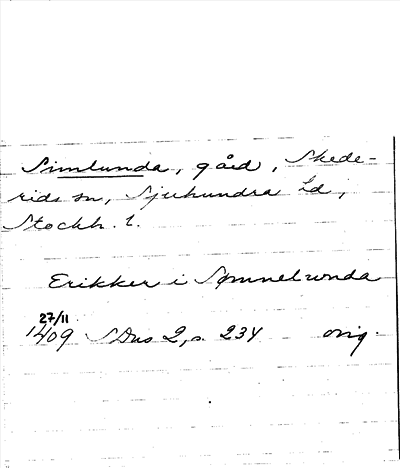 Simlunda, gård, Skede-
rids sn, Sjuhundra hd,
Stockh. l.
Erikker i Sømmelwnda
27/11
1409 SDns 2, s. 234 orig.